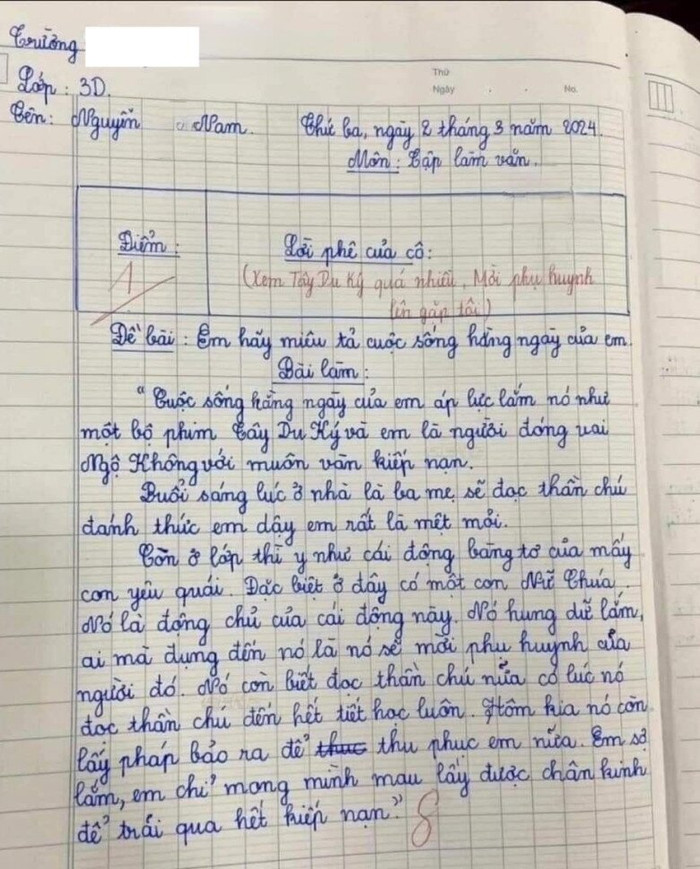 Trường
Lớp: 3D.
Tên: Nguyễn Nam.
Thứ
Ngày . . No.
Thứ ba, ngày 2 tháng 3 năm 2024.
Môn: Tập làm văn.
Điểm:
1
Lời phê của cô:
(Xem Tây Du Ký quá nhiều, Mời phụ huynh
lên gặp tôi)
Đề bài: Em hãy miêu tả cuộc sống hằng ngày của em.
Bài làm:
"Cuộc sống hằng ngày của em áp lực lắm nó như
một bộ phim Tây Du Ký và em là người đóng vai
Ngộ Không với muôn vàn kiếp nạn.
Buổi sáng lúc ở nhà là ba mẹ sẽ đọc thần chú
đánh thức em dậy em rất là mệt mỏi.
Còn ở lớp thì y như cái động bàng tơ của mấy
con yêu quái. Đặc biệt ở đây có một con Nữ Chúa.
Nó là động chủ của cái động này. Nó hung dữ lắm,
ai mà đụng đến nó là nó sẽ mời phụ huynh của
người đó. Nó còn biết đọc thần chú nữa có lúc nó
đọc thần chú đến hết tiết học luôn. Hôm kia nó còn
lấy pháp bảo ra để thuc thu phục em nữa. Em sợ
lắm, em chỉ mong mình mau lấy được chân kinh
để trải qua hết kiếp nạn."
8